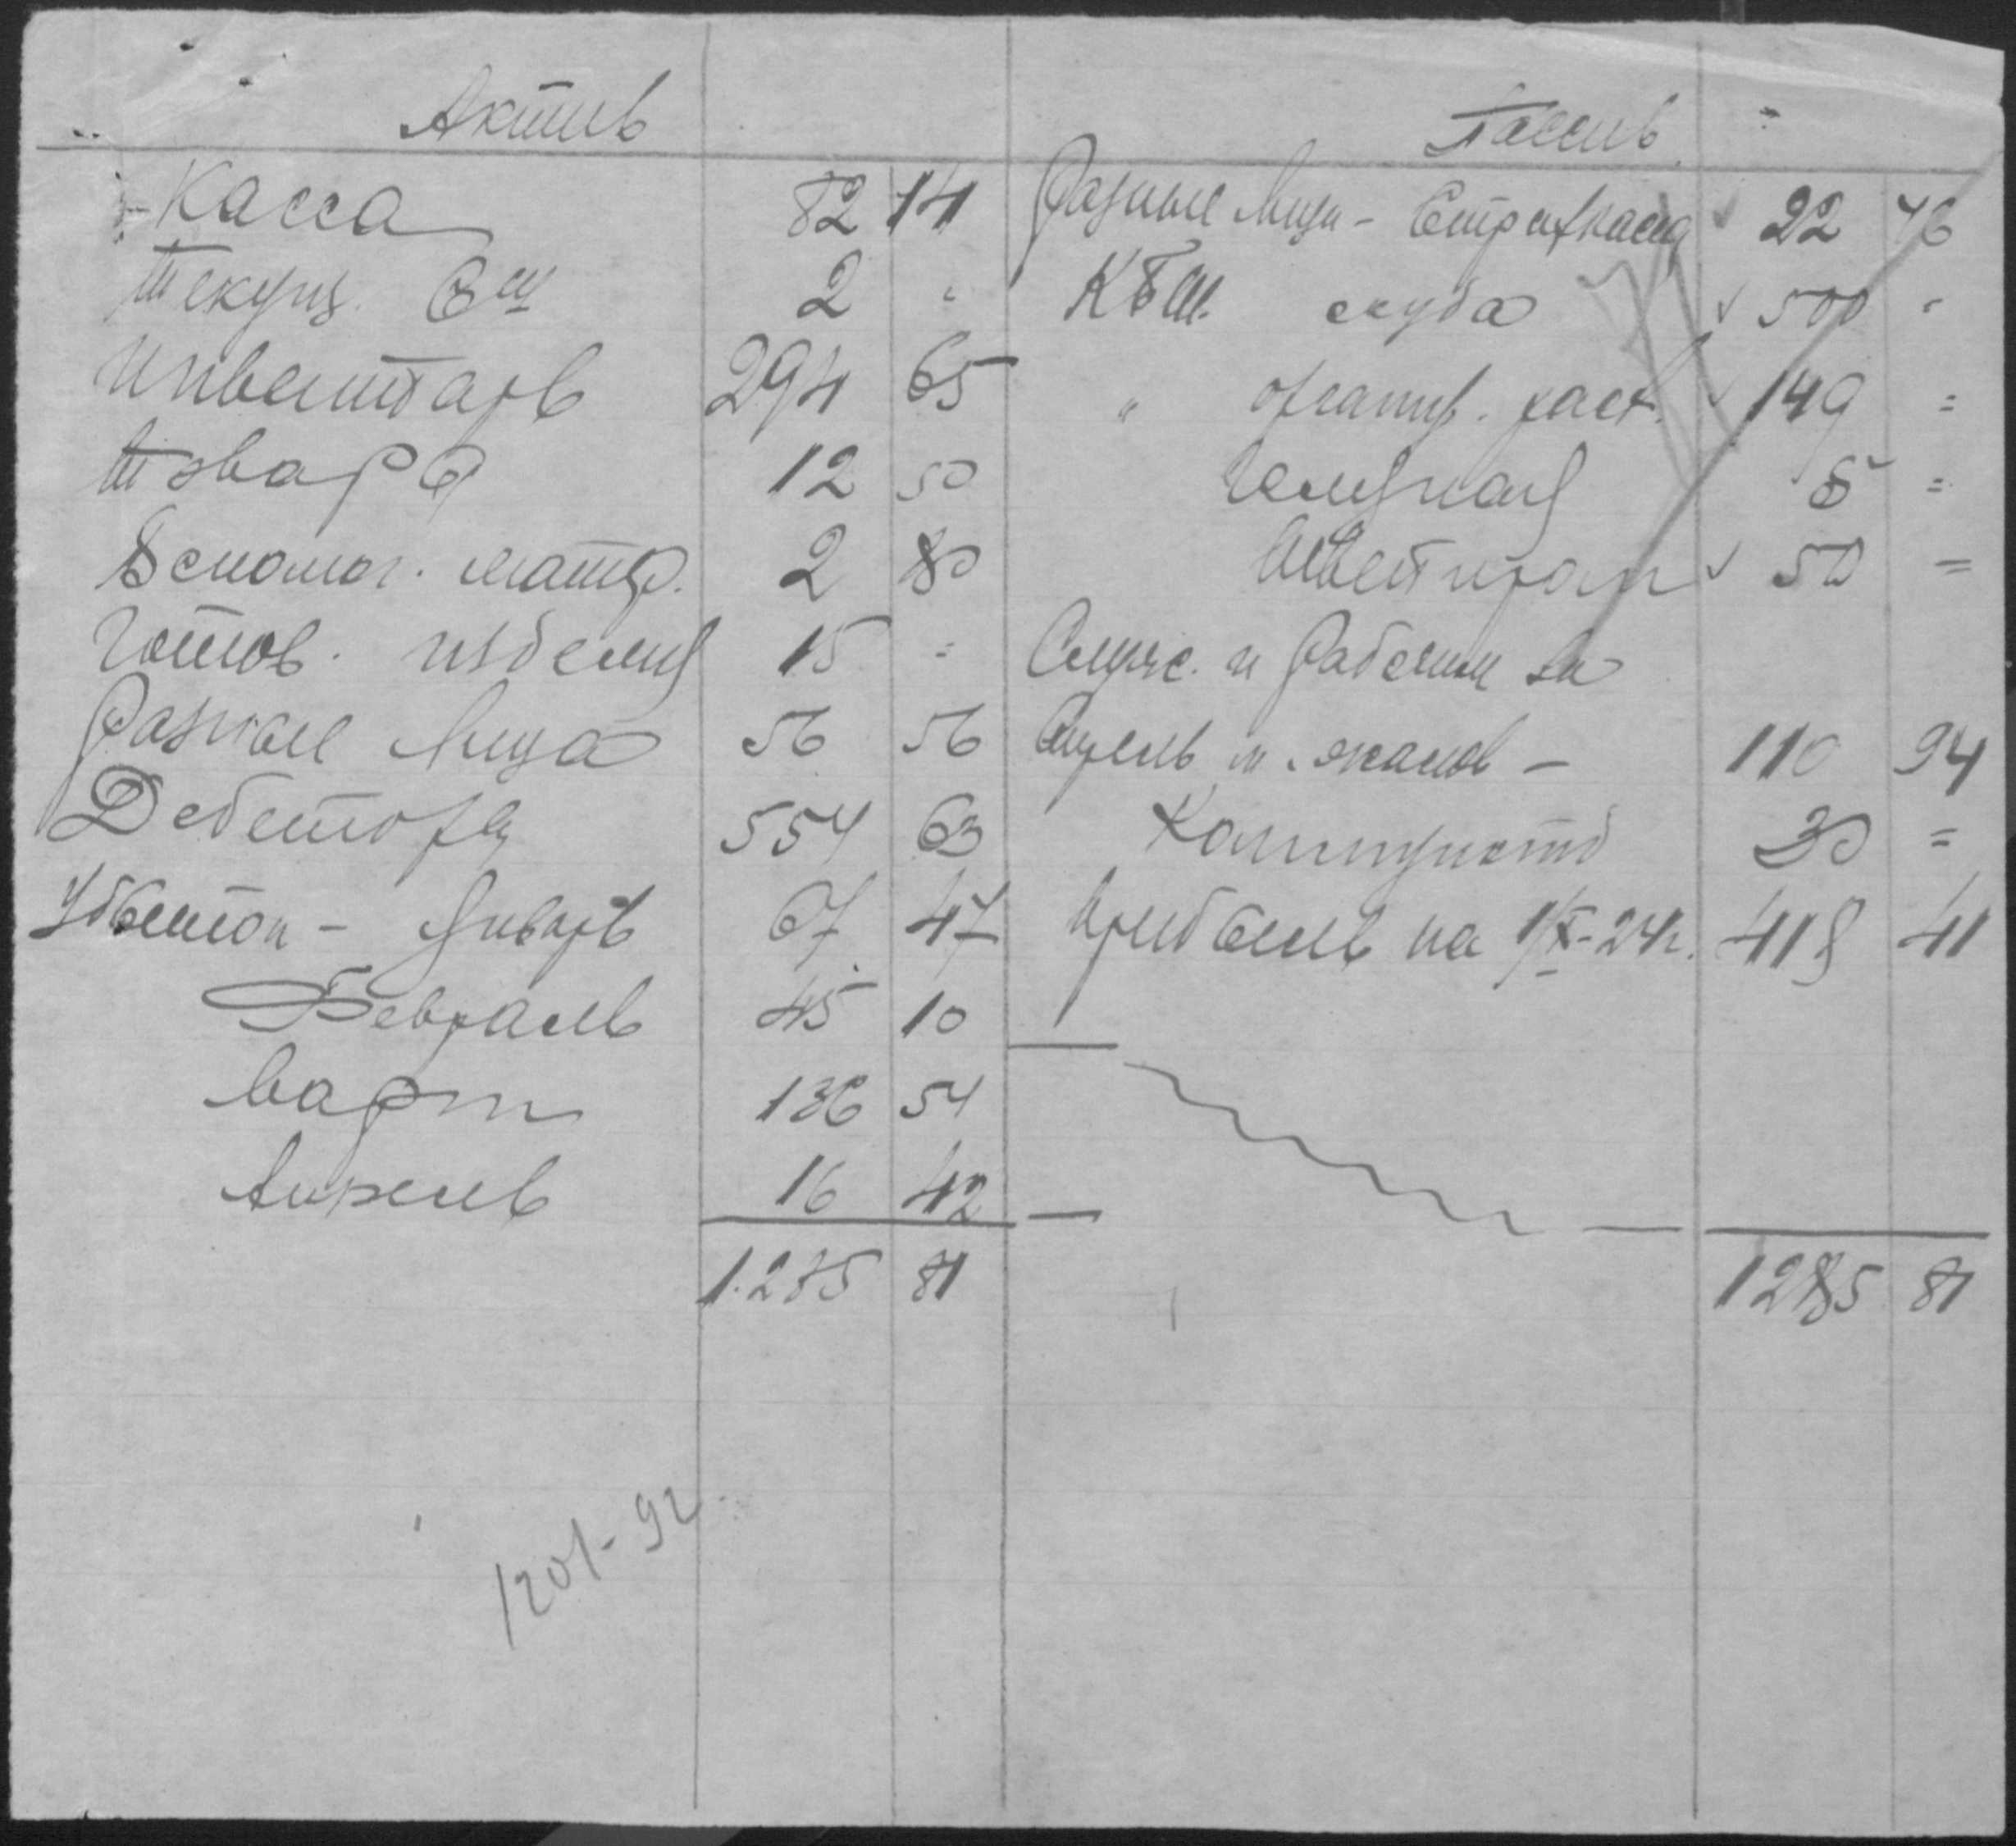 Актив
Пассив
Касса 82 14
Текущ. Сч 2 "
Инвентарь 294 65
Товары 12 50
Вспомог. матер. 2 80
Готов. изделия 15 =
Разные лица 56 56
Дебеторы 554 63
Убыток - Январь 67 47
Февраль 45 10
Март 136 54
Апрель 16 42
1.285 81
Разные лица - Страхкасса 22 46
КБШ. ссуда 500 "
" организ. расх. 149 =
5 =
50 =
Служ. и Рабочим за
Апрель м. жалов - 110 94
30 =
Прибыль на 1/X-24г. 418 41
1285 81
1201-92